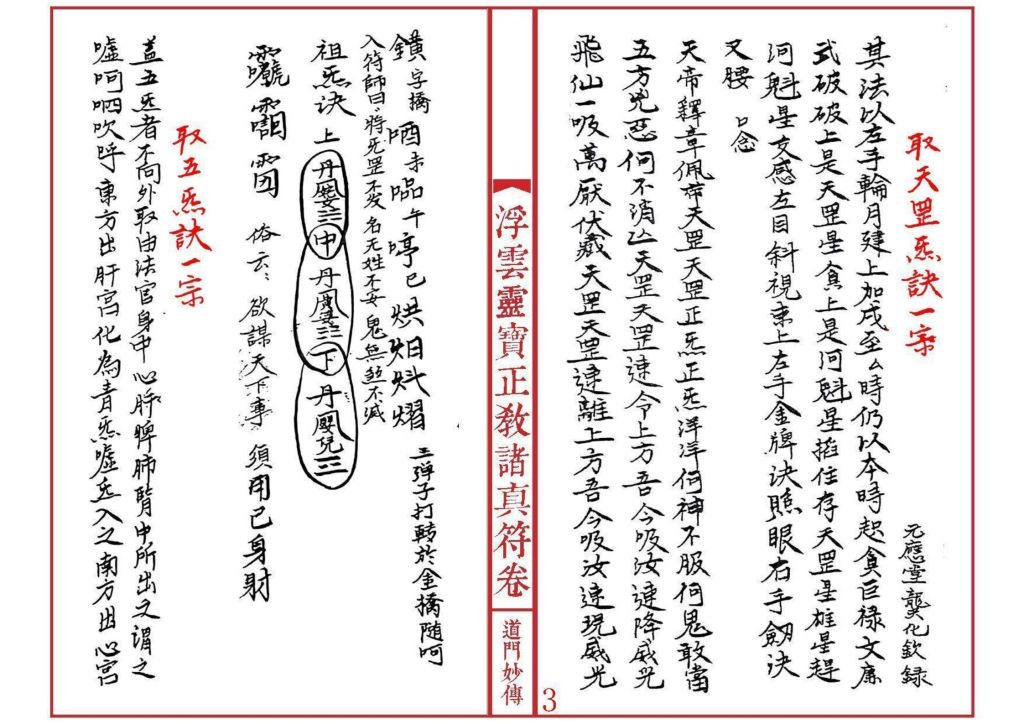 取天罡炁訣一宗
元應堂龔化欽録
其法以左手輪月建上加戌至么時仍以本時起貪巨禄文廉
武破破上是天罡星貪上是河魁星掐住存天罡星雄星趕
河魁星交感左目斜視東上左手金牌訣照眼右手劔訣
叉腰 口念
天帝釋章佩帯天罡天罡正炁正炁洋洋何神不服何鬼敢當
五方兇惡何不消亾天罡天罡速令上方吾今吸汝速降威光
飛仙一吸萬厭伏藏天罡天罡速離上方吾今吸汝速現威光
浮雲靈寶正敎諸真符卷
道門妙傳
3
鐄字橋 唒 㖔 午 啈 巳 烘 炟 炓 熠 三彈子打轉於金橋隨呵
入符師曰将死罡不发名无姓不安鬼無煞不滅
祖炁决 上 丹 三 中 丹 三 下 丹 嬰兒 三
俗云欲謀天下事 須用已身射
取五炁訣一宗
盖五炁者不向外取由法官身中心肝脾肺腎中所出又謂之
嘘呵呬吹呼東方出肝宫化為青炁嘘炁入之南方出心宫